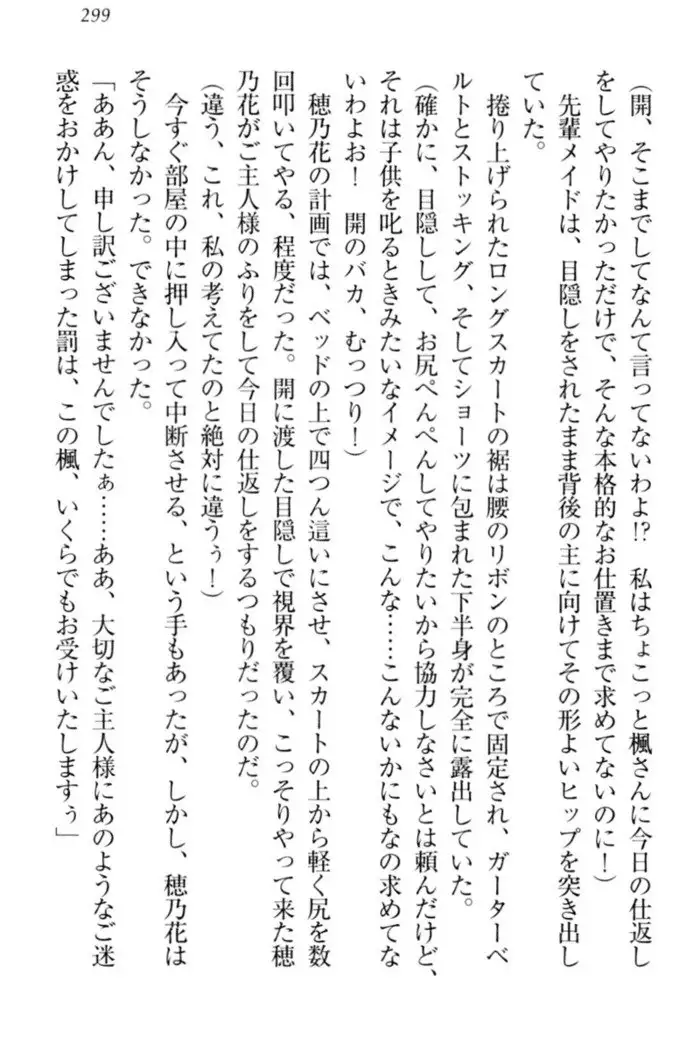 299
(開、そこまでしてなんて言ってないわよ!? 私はちょこっと楓さんに今日の仕返し
をしてやりたかっただけで、そんな本格的なお仕置きまで求めてないのに!)
先輩メイドは、目隠しをされたまま背後の主に向けてその形よいヒップを突き出し
ていた。
捲り上げられたロングスカートの裾は腰のリボンのところで固定され、ガーターベ
ルトとストッキング、そしてショーツに包まれた下半身が完全に露出していた。
(確かに、目隠しして、お尻ぺんぺんしてやりたいから協力しなさいとは頼んだけど、
それは子供を叱るときみたいなイメージで、こんな……こんないかにもなの求めてな
いわよお! 開のバカ、むっつり!)
穂乃花の計画では、ベッドの上で四つん這いにさせ、スカートの上から軽く尻を数
回叩いてやる、程度だった。開に渡した目隠しで視界を覆い、こっそりやって来た穂
乃花がご主人様のふりをして今日の仕返しをするつもりだったのだ。
(違う、これ、私の考えてたのと絶対に違うぅ!)
今すぐ部屋の中に押し入って中断させる、という手もあったが、しかし、穂乃花は
そうしなかった。できなかった。
「ああん、申し訳ございませんでしたぁ……ああ、大切なご主人様にあのようなご迷
惑をおかけしてしまった罰は、この楓、いくらでもお受けいたしますぅ」